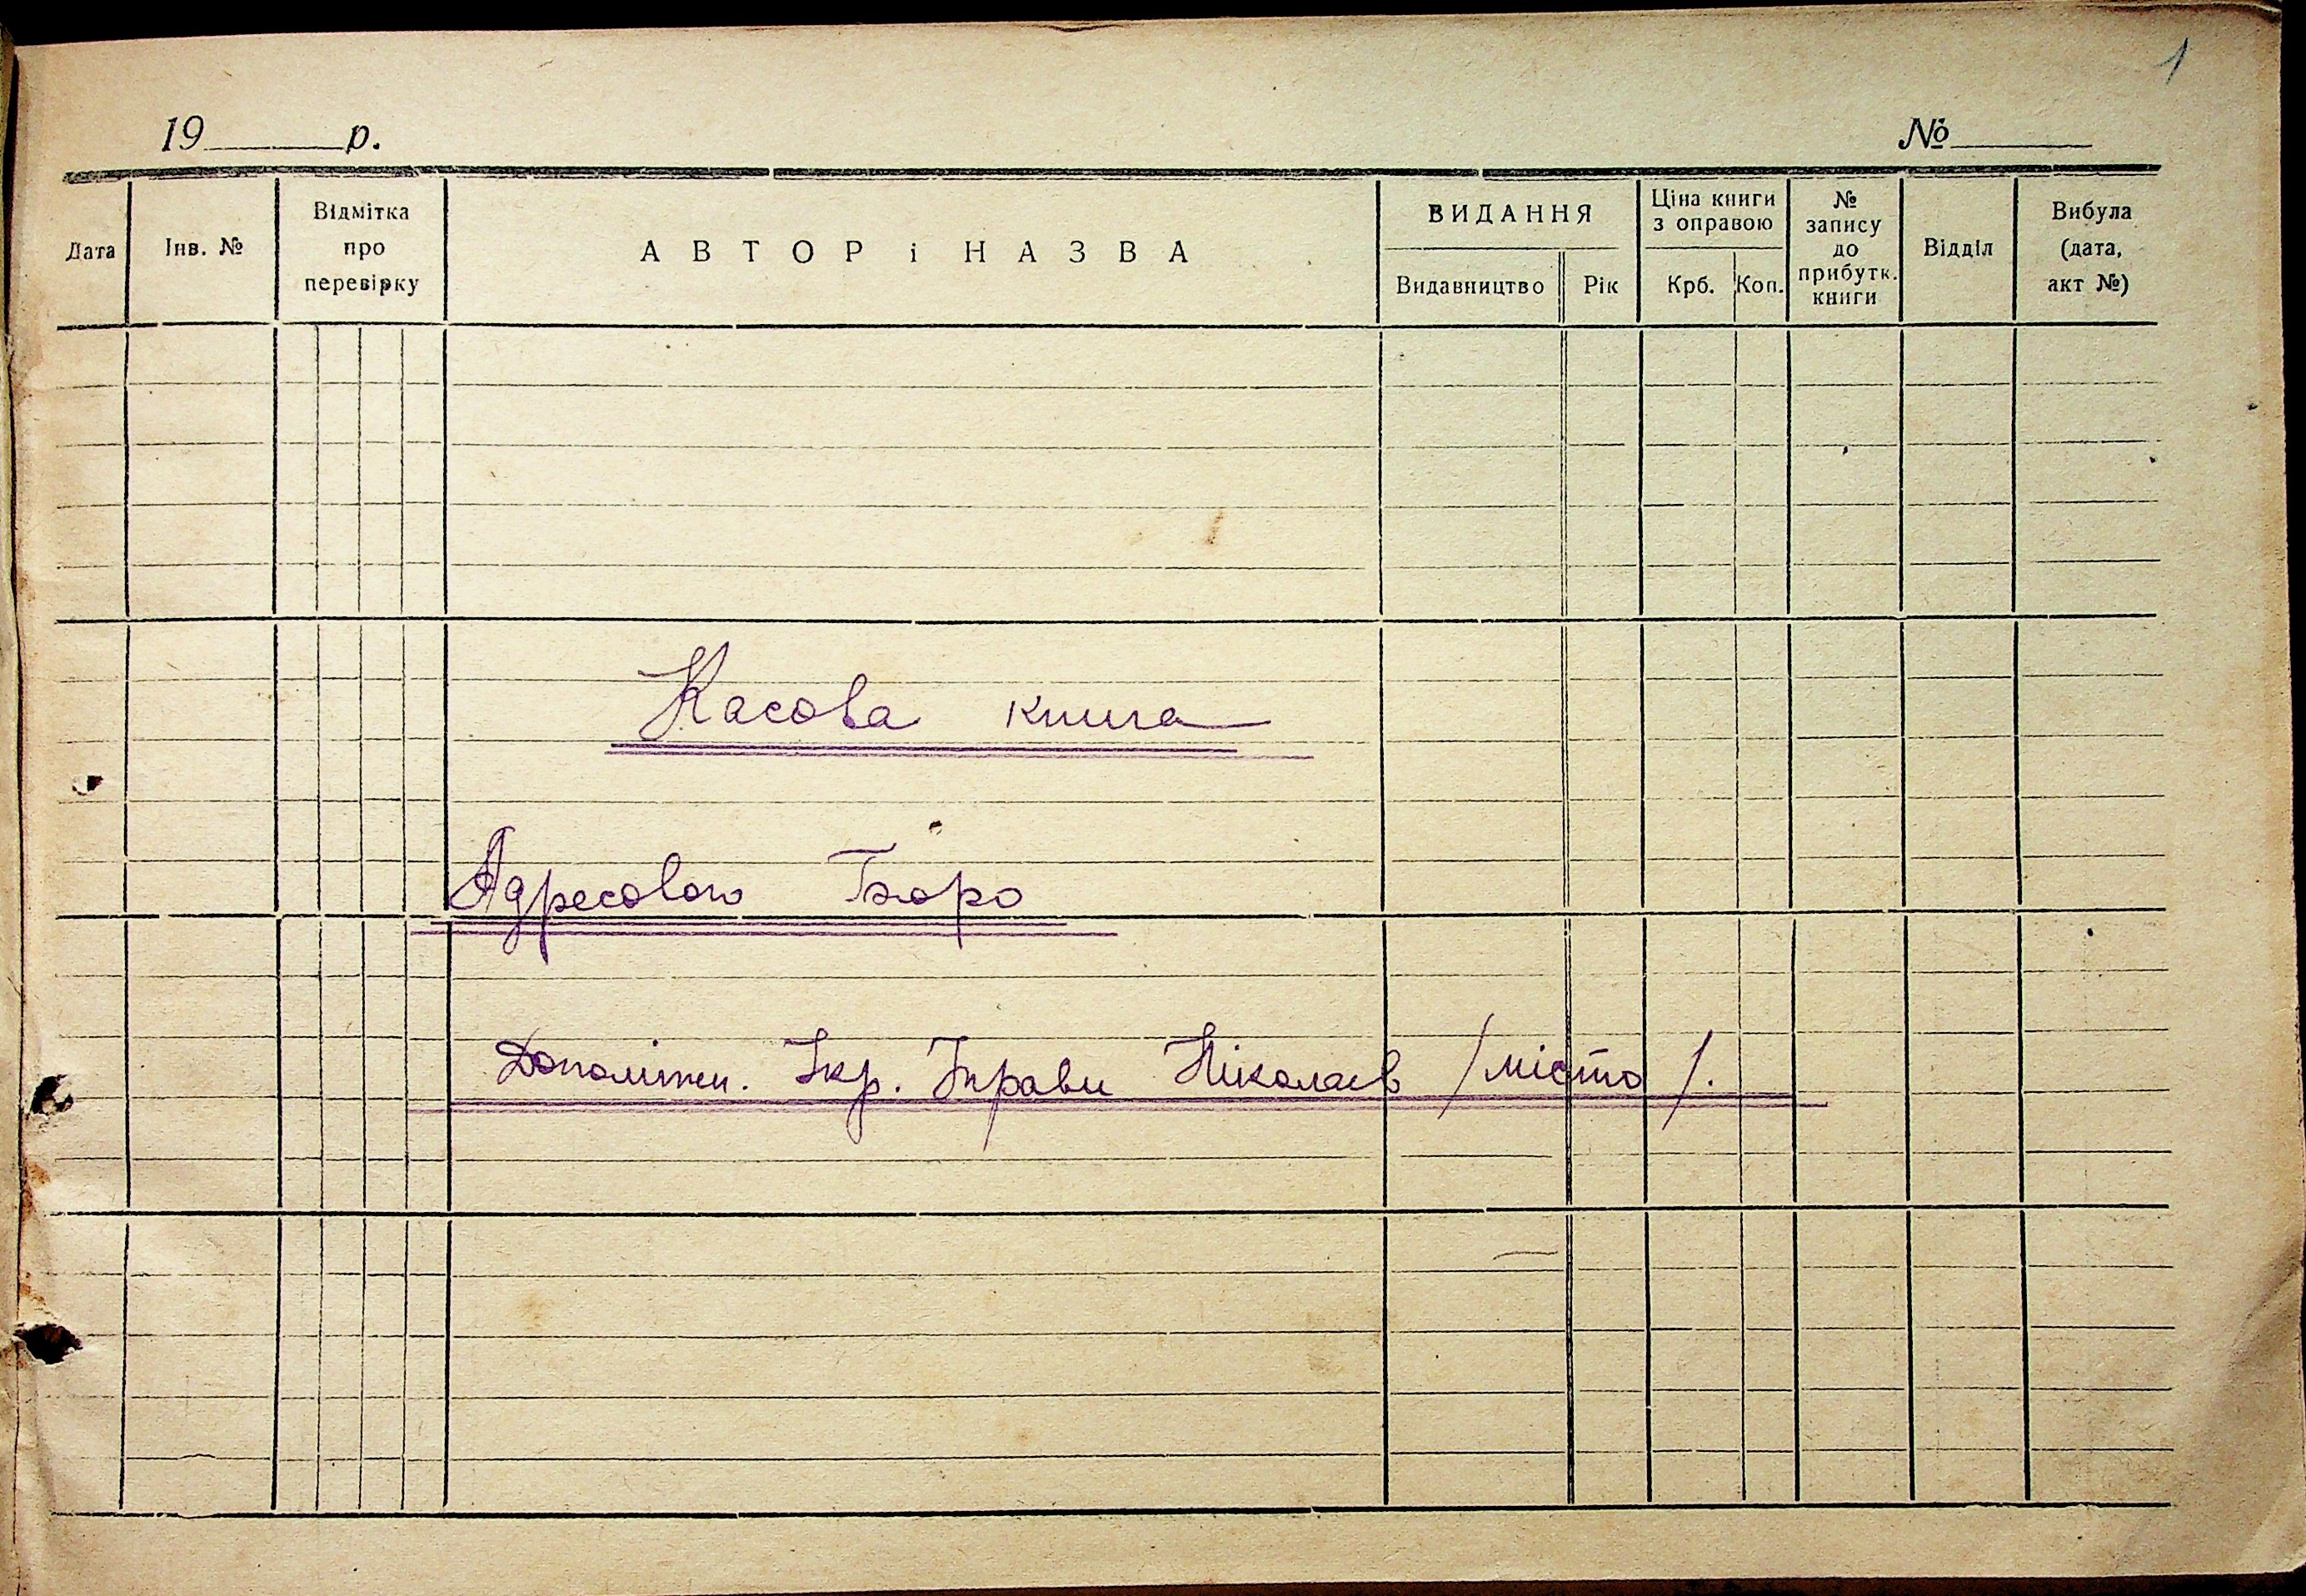 1
19 р.
№
Дата
Інв. №
Відмітка
про
перевірку
АВТОР і НАЗВА
ВИДАННЯ
Видавництво
Рік
Ціна книги
з оправою
Крб.
Коп.
№
запису
до
прибутк.
книги
Відділ
Вибула
(дата,
акт №)
Касова книга
Адресового Бюро
Допоміжн. Укр. Управи Ніколаєв /місто/.